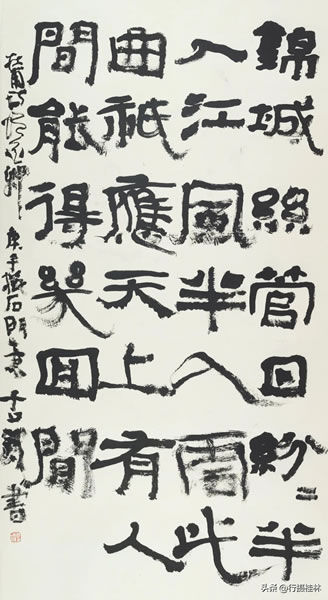 錦城絲管日紛〻半
入江風半入雲此
曲祇應天上有人
間能得幾回聞
杜甫詩贈花卿 庚午 石門 書
头条 @行摄桂林